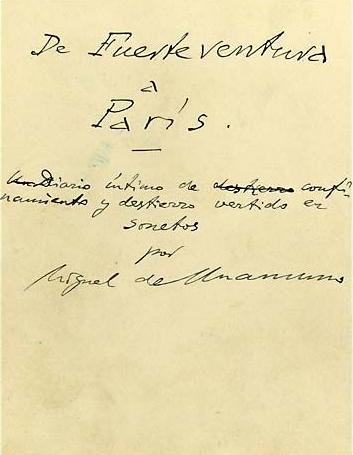 De Fuerteventura
a
París.
Un Diario íntimo de destierro confi-
namiento y destierro vertido en
sonetos
por
Miguel de Unamuno